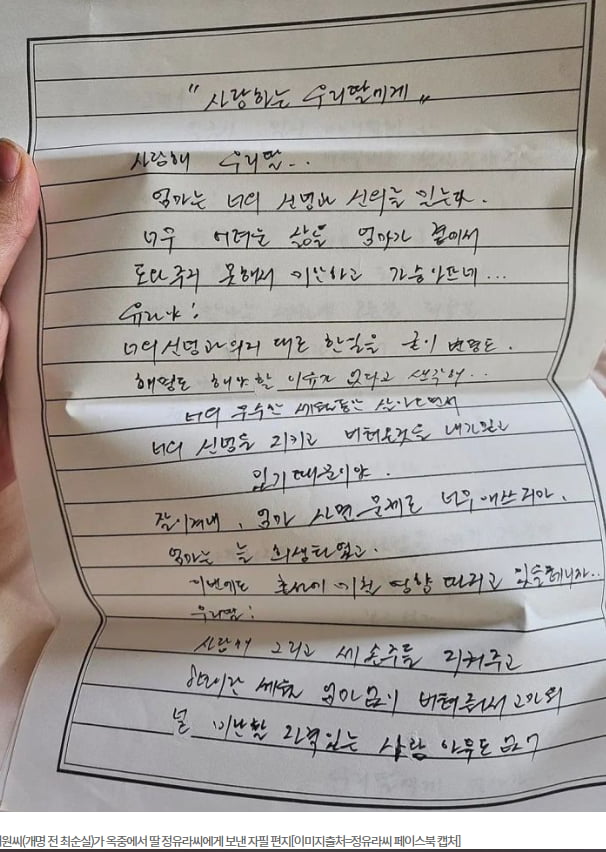 "사랑하는 우리딸에게"
사랑해 우리딸...
엄마는 너의 선명과 신의를 믿는다.
너무 어려운 삶을 엄마가 곁에서
도와주지 못해서 미안하고 가슴아프네...
유라야!
너의 선명과 의리 대로 한일을 굳이 변명도.
해명도 해야할 이유가 없다고 생각해...
너의 무수한 세월동안 살아오면서
너의 신념을 지키고 버텨온것을 내가 알고
있기 때문이야.
잘 이겨내. 엄마 사면 문제로 너무 애쓰지마.
엄마는 늘 희생되었고.
이번에도 총선에 미칠 영향 따지고 있을테니까..
우리딸!
사랑해 그리고 세 손주들 지켜주고
엄마 버텨줘서 고마워
널 비난할 자격있는 사람 아무도 없어
원씨(개명 전 최순실)가 옥중에서 딸 정유라씨에게 보낸 자필 편지[이미지출처=정유라씨 페이스북 캡처]